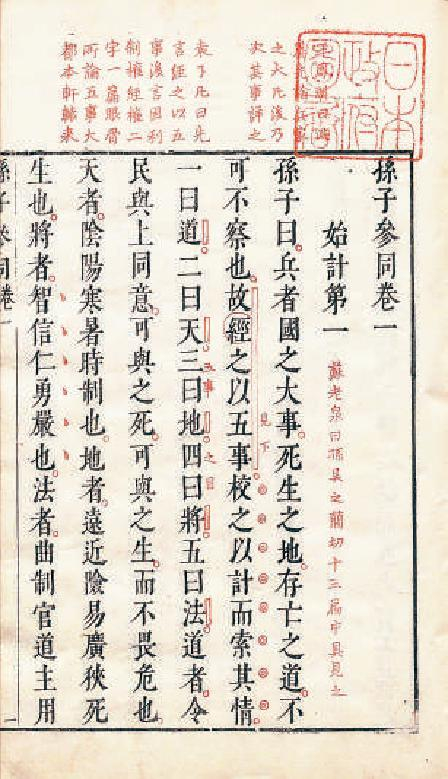 日本
政府
圖書
之大凡後乃
次其事評之
袁了凡曰先
言經之以五
事後言因利
制權經權二
字一篇眼
所論五事大
都本軒歸來
孫子參同卷一
始計第一
蘇老泉曰孫吳之簡切十三篇中具見之
孫子曰兵者國之大事死生之地存亡之道不
可不察也故經之以五事校之以計而索其情
見下
一曰道二曰天三曰地四曰將五曰法道者令
五事之目
民與上同意可與之死可與之生而不畏危也
天者陰陽寒暑時制也地者遠近險易廣狹死
生也將者智信仁勇嚴也法者曲制官道主用
孫子參同卷一
一